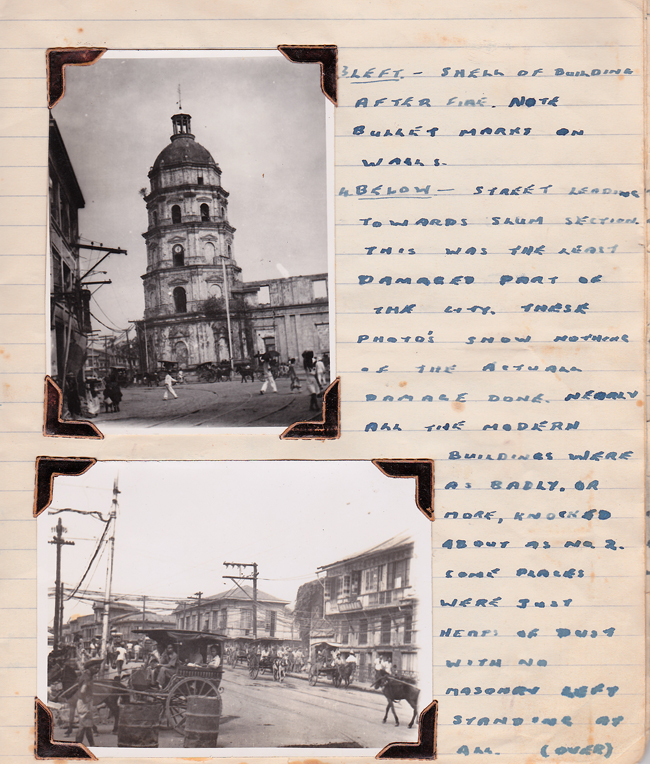 3 LEFT. - SHELL OF BUILDING
AFTER FIRE. NOTE
BULLET MARKS ON
WALLS.
4 BELOW - STREET LEADING
TOWARDS SLUM SECTION.
THIS WAS THE LEAST
DAMAGED PART OF
THE CITY. THESE
PHOTO'S SHOW NOTHING
OF THE ACTUALL
DAMAGE DONE. NEARLY
ALL THE MODERN
BUILDINGS WERE
AS BADLY, OR
MORE, KNOCKED
ABOUT AS NO 2.
SOME PLACES
WERE JUST
HEAPS OF DUST
WITH NO
MASONRY LEFT
STANDING AT
ALL. (OVER)